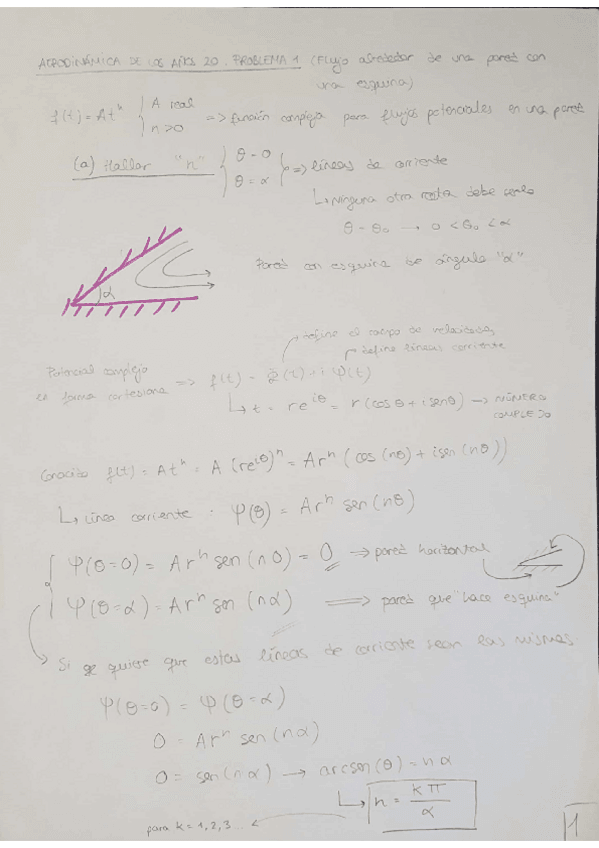 AERODINÁMICA DE LOS AÑOS 20. PROBLEMA 1 (Flujo alrededor de una pared con
una esquina)
f(t) = Atⁿ { A real
n>0 => función compleja para flujos potenciales en una pared
(a) Hallar "n" { θ = 0
θ = α } => líneas de corriente
↳ Ninguna otra recta debe serlo
θ = θ₀ → 0 < θ₀ < α
α
Pared con esquina de ángulo "α"
define el campo de velocidades
define líneas corriente
Potencial complejo
en forma cartesiana => f(t) = Φ(t) + i Ψ(t)
↳ t = re^{iθ} = r(cosθ + i senθ) → NÚMERO
COMPLEJO
Conocido f(t) = Atⁿ = A (re^{iθ})ⁿ = Arⁿ (cos(nθ) + i sen(nθ))
↳ Línea corriente : Ψ(θ) = Arⁿ sen(nθ)
Ψ(θ=0) = Arⁿ sen(n0) = 0 → pared horizontal
Ψ(θ=α) = Arⁿ sen(nα) => pared que "hace esquina"
Si se quiere que estas líneas de corriente sean las mismas
Ψ(θ=0) = Ψ(θ=α)
0 = Arⁿ sen(nα)
0 = sen(nα) → arcsen(0) = nα
↳ n = kπ/α
para k = 1,2,3...
1